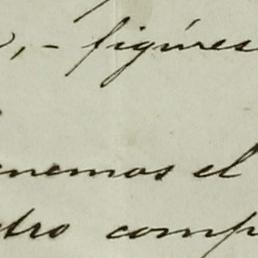 , - figúres
nemos el
tro comp